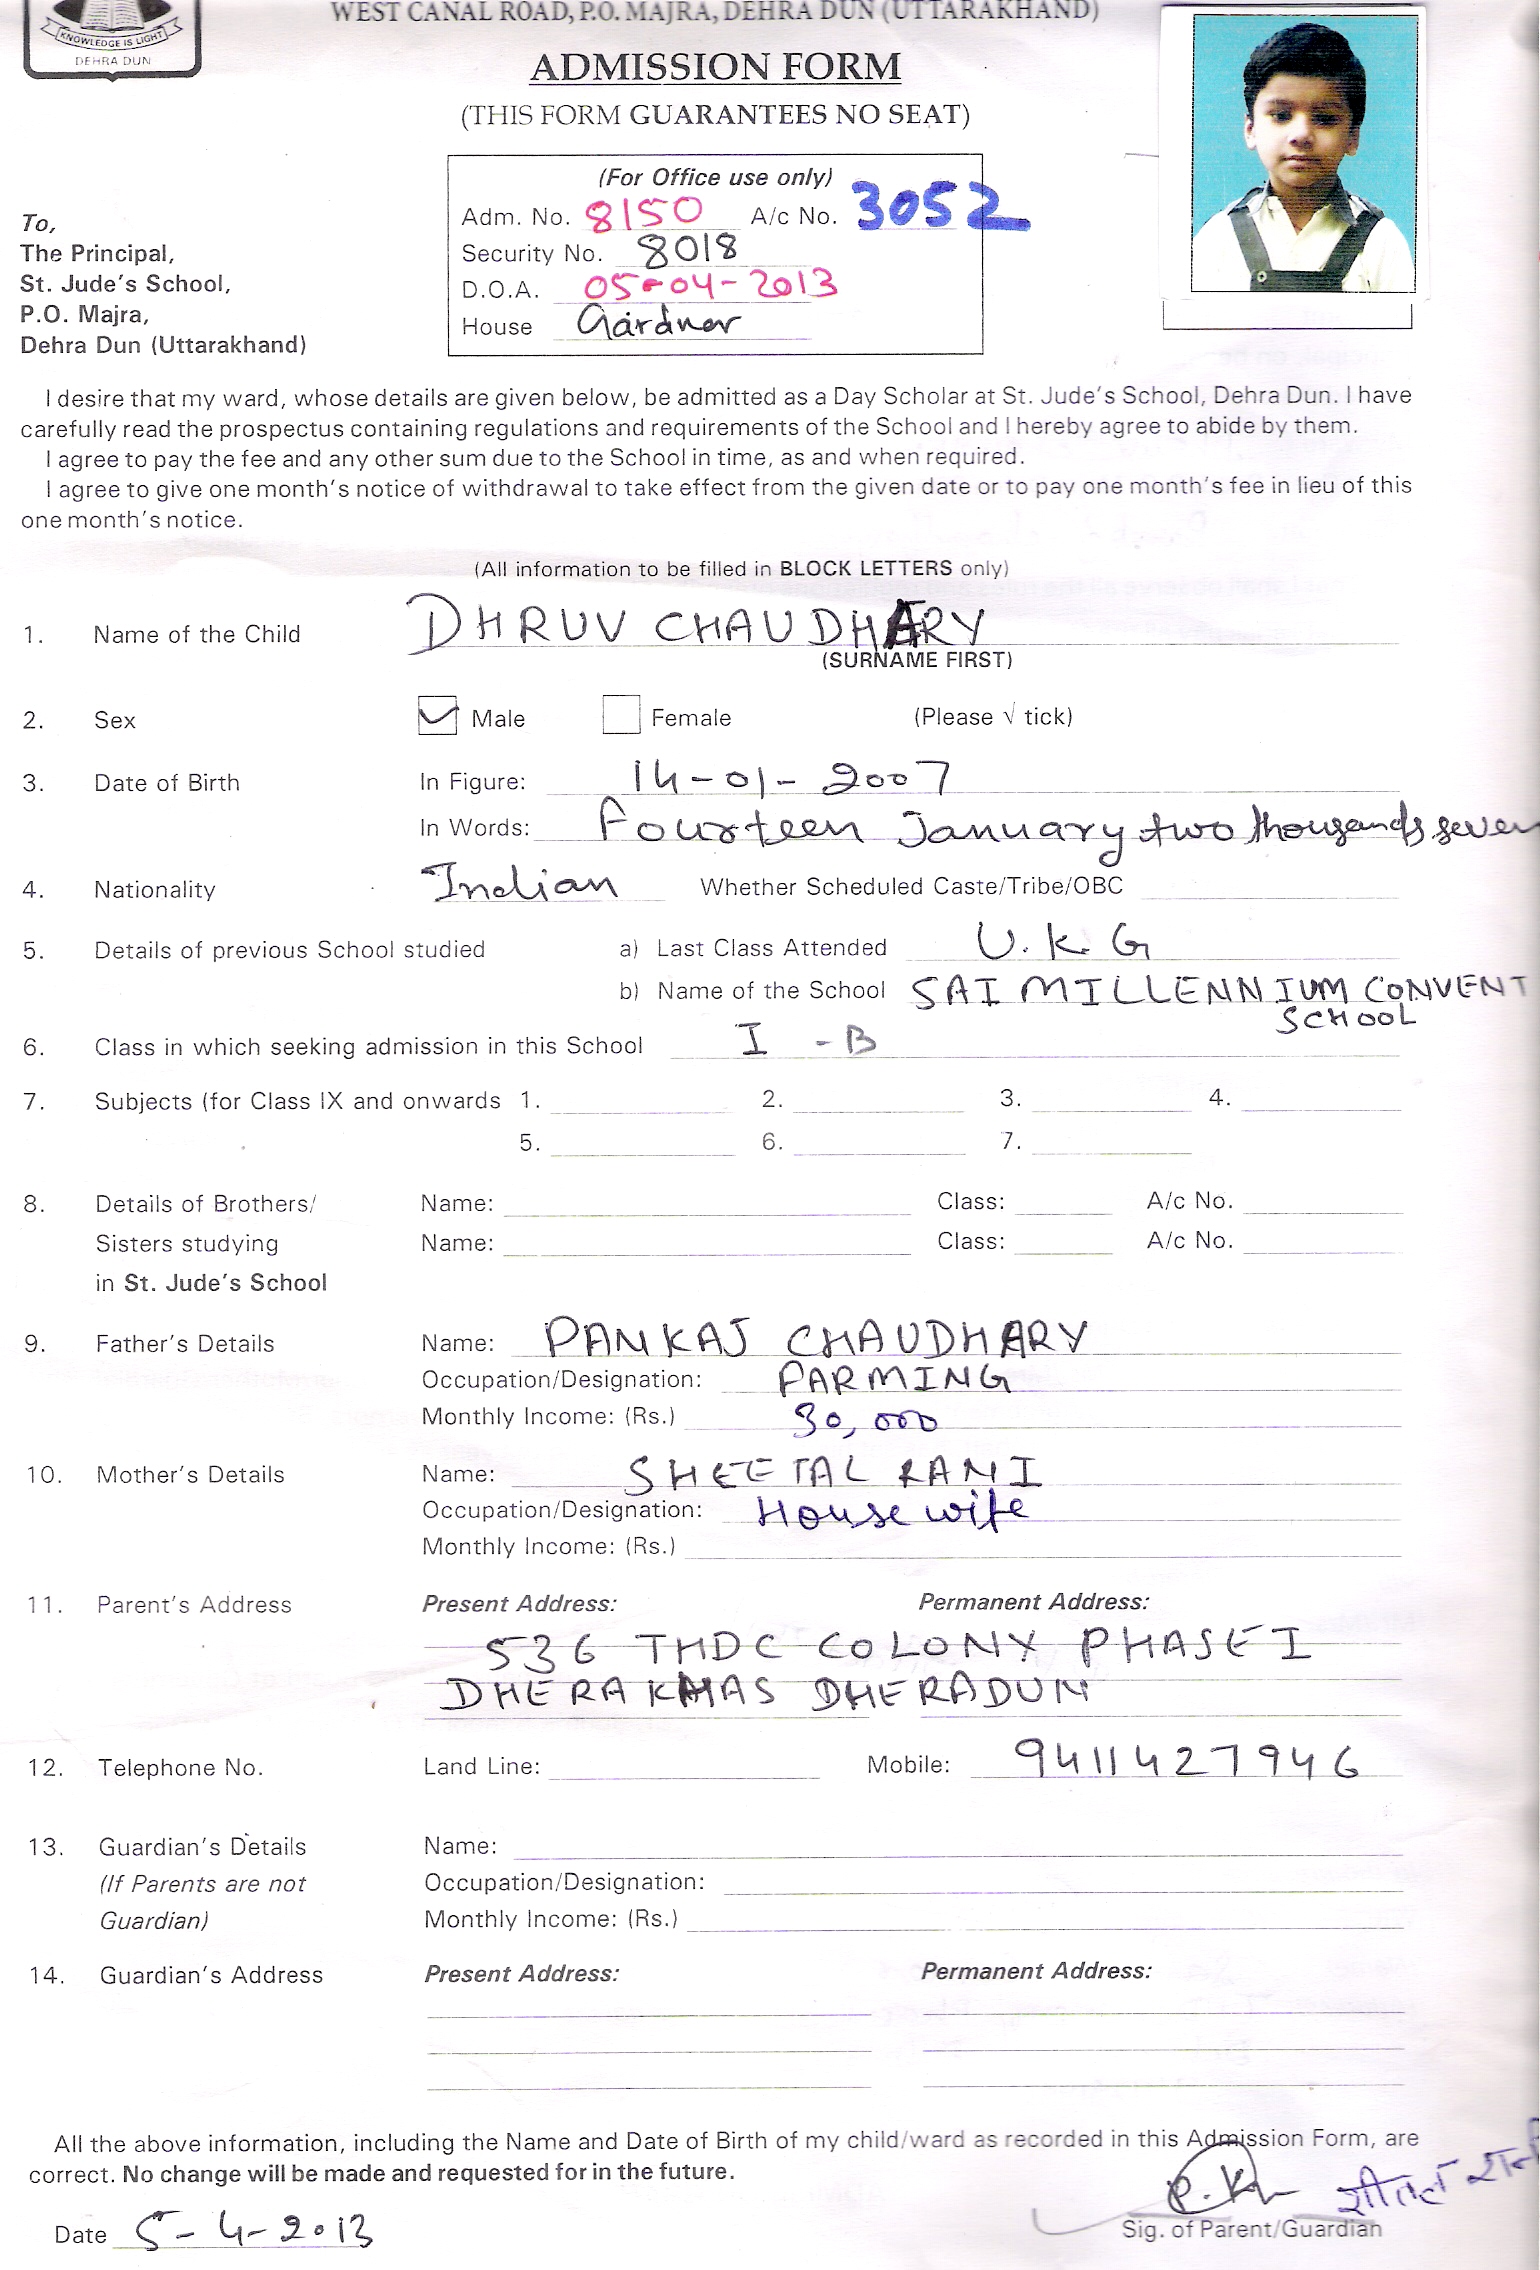 KNOWLEDGE IS LIGHT
DEHRA DUN
WEST CANAL ROAD, P.O. MAJRA, DEHRA DUN (UTTARAKHAND)
ADMISSION FORM
(THIS FORM GUARANTEES NO SEAT)
(For Office use only)
Adm. No. 8150 A/c No. 3052
Security No. 8018
D.O.A. 05-04-2013
House Gardner
To,
The Principal,
St. Jude's School,
P.O. Majra,
Dehra Dun (Uttarakhand)
I desire that my ward, whose details are given below, be admitted as a Day Scholar at St. Jude's School, Dehra Dun. I have
carefully read the prospectus containing regulations and requirements of the School and I hereby agree to abide by them.
I agree to pay the fee and any other sum due to the School in time, as and when required.
I agree to give one month's notice of withdrawal to take effect from the given date or to pay one month's fee in lieu of this
one month's notice.
(All information to be filled in BLOCK LETTERS only)
1. Name of the Child DHRUV CHAUDHARY
(SURNAME FIRST)
2. Sex Male Female (Please √ tick)
3. Date of Birth In Figure: 14-01-2007
In Words: Fourteen January two thousands seven
4. Nationality Indian Whether Scheduled Caste/Tribe/OBC
5. Details of previous School studied a) Last Class Attended U.K.G
b) Name of the School SAI MILLENNIUM CONVENT
SCHOOL
6. Class in which seeking admission in this School I - B
7. Subjects (for Class IX and onwards 1. 2. 3. 4.
5. 6. 7.
8. Details of Brothers/ Name: Class: A/c No.
Sisters studying Name: Class: A/c No.
in St. Jude's School
9. Father's Details Name: PANKAJ CHAUDHARY
Occupation/Designation: FARMING
Monthly Income: (Rs.) 30,000
10. Mother's Details Name: SHEETAL RANI
Occupation/Designation: House wife
Monthly Income: (Rs.)
11. Parent's Address Present Address: Permanent Address:
536 THDC COLONY PHASE I
DHERA KHAS DHERADUN
12. Telephone No. Land Line: Mobile: 9411427946
13. Guardian's Details Name:
(If Parents are not Occupation/Designation:
Guardian) Monthly Income: (Rs.)
14. Guardian's Address Present Address: Permanent Address:
All the above information, including the Name and Date of Birth of my child/ward as recorded in this Admission Form, are
correct. No change will be made and requested for in the future.
Date 5-4-2013 Sig. of Parent/Guardian